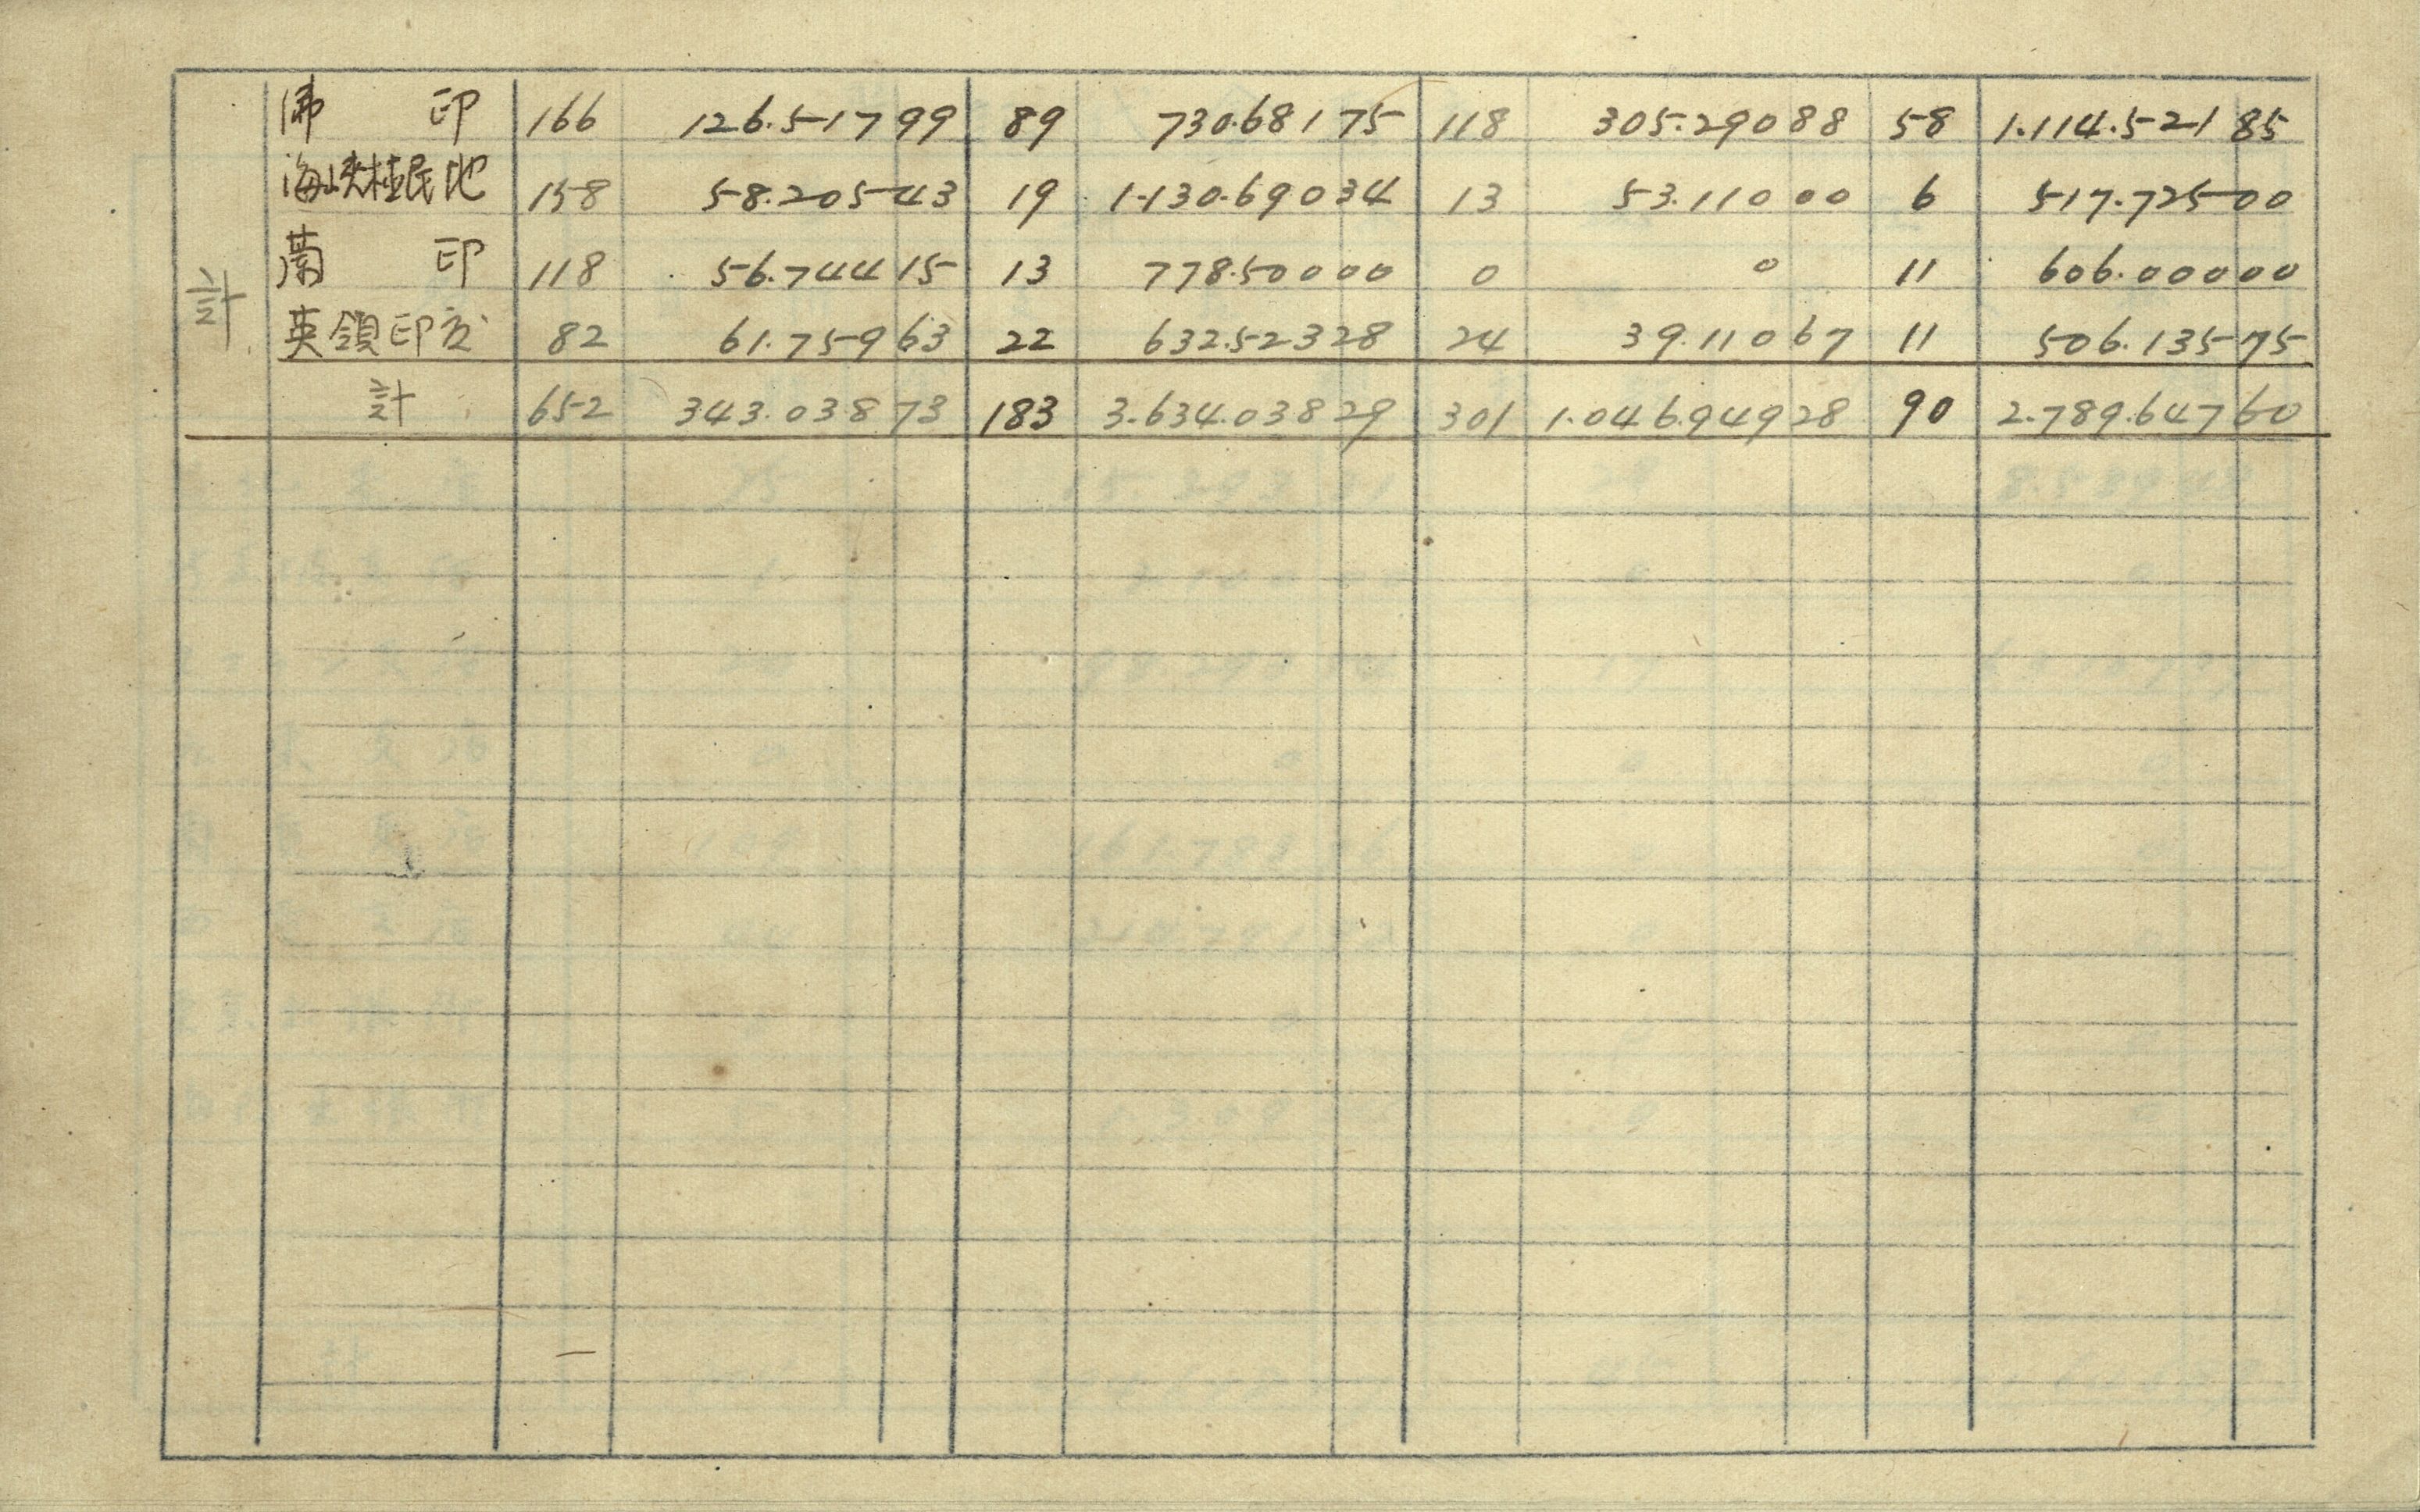 佛印 166 126.517 99 89 730.681 75 118 305.290 88 58 1.114.521 85
海峡植民地 158 58.205 43 19 1.130.690 34 13 53.110 00 6 517.725 00
蘭印 118 56.744 15 13 778.500 00 0 0 11 606.000 00
計 英領印度 82 61.759 63 22 632.523 28 24 39.110 67 11 506.135 75
計 652 343.038 73 183 3.634.038 29 301 1.046.949 28 90 2.789.647 60